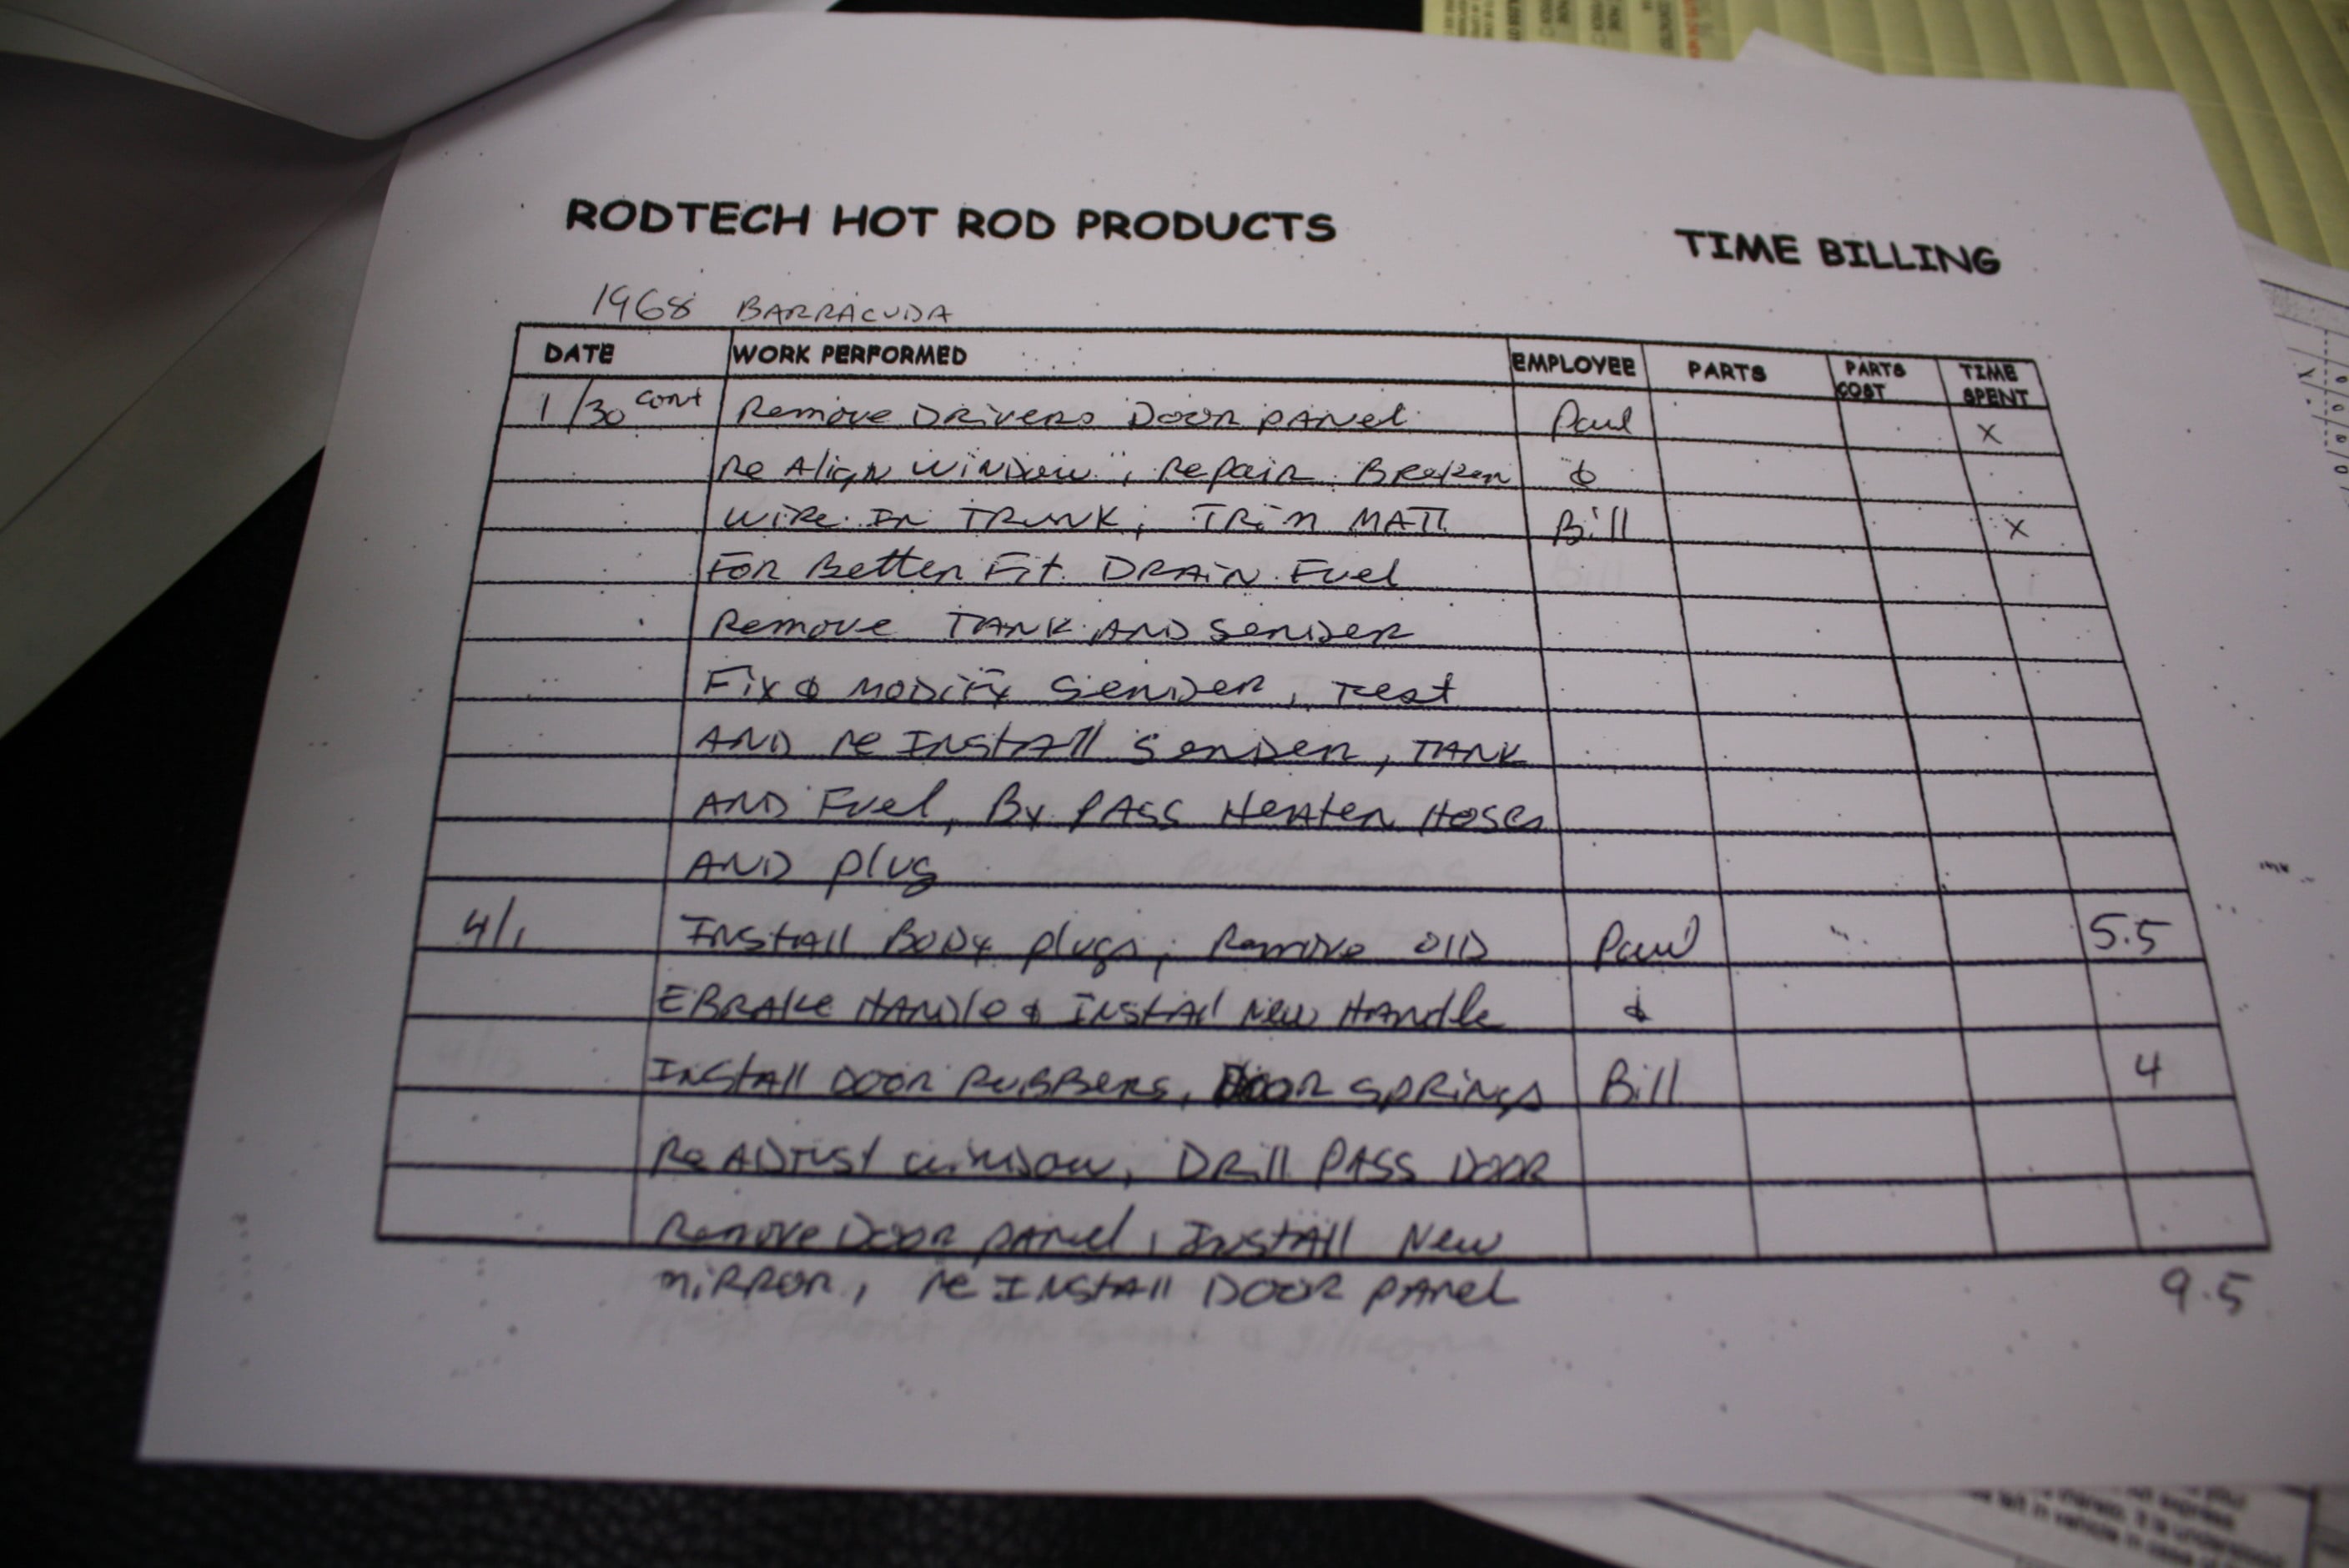 RODTECH HOT ROD PRODUCTS TIME BILLING
1968 BARRACUDA
DATE WORK PERFORMED EMPLOYEE PARTS PARTS COST TIME SPENT
1/30 cont Remove Drivers Door panel Paul x
Re Align window, Repair Broken &
wire in Trunk, Trim MATT Bill x
For Better Fit. DRAIN Fuel
Remove TANK AND Sender
Fix & modify Sender, Test
AND re INSTALL Sender, TANK
AND Fuel, By PASS Heater Hoses
AND plug
4/1 INSTALL BODY plugs, Remove OLD Paul 5.5
EBRAKE HANDLE & INSTALL New Handle &
INSTALL DOOR RUBBERS, DOOR SPRINGS Bill 4
Re ADJUST window, DRILL PASS DOOR
Remove Door panel, INSTALL New
MIRROR, re INSTALL DOOR PANEL 9.5